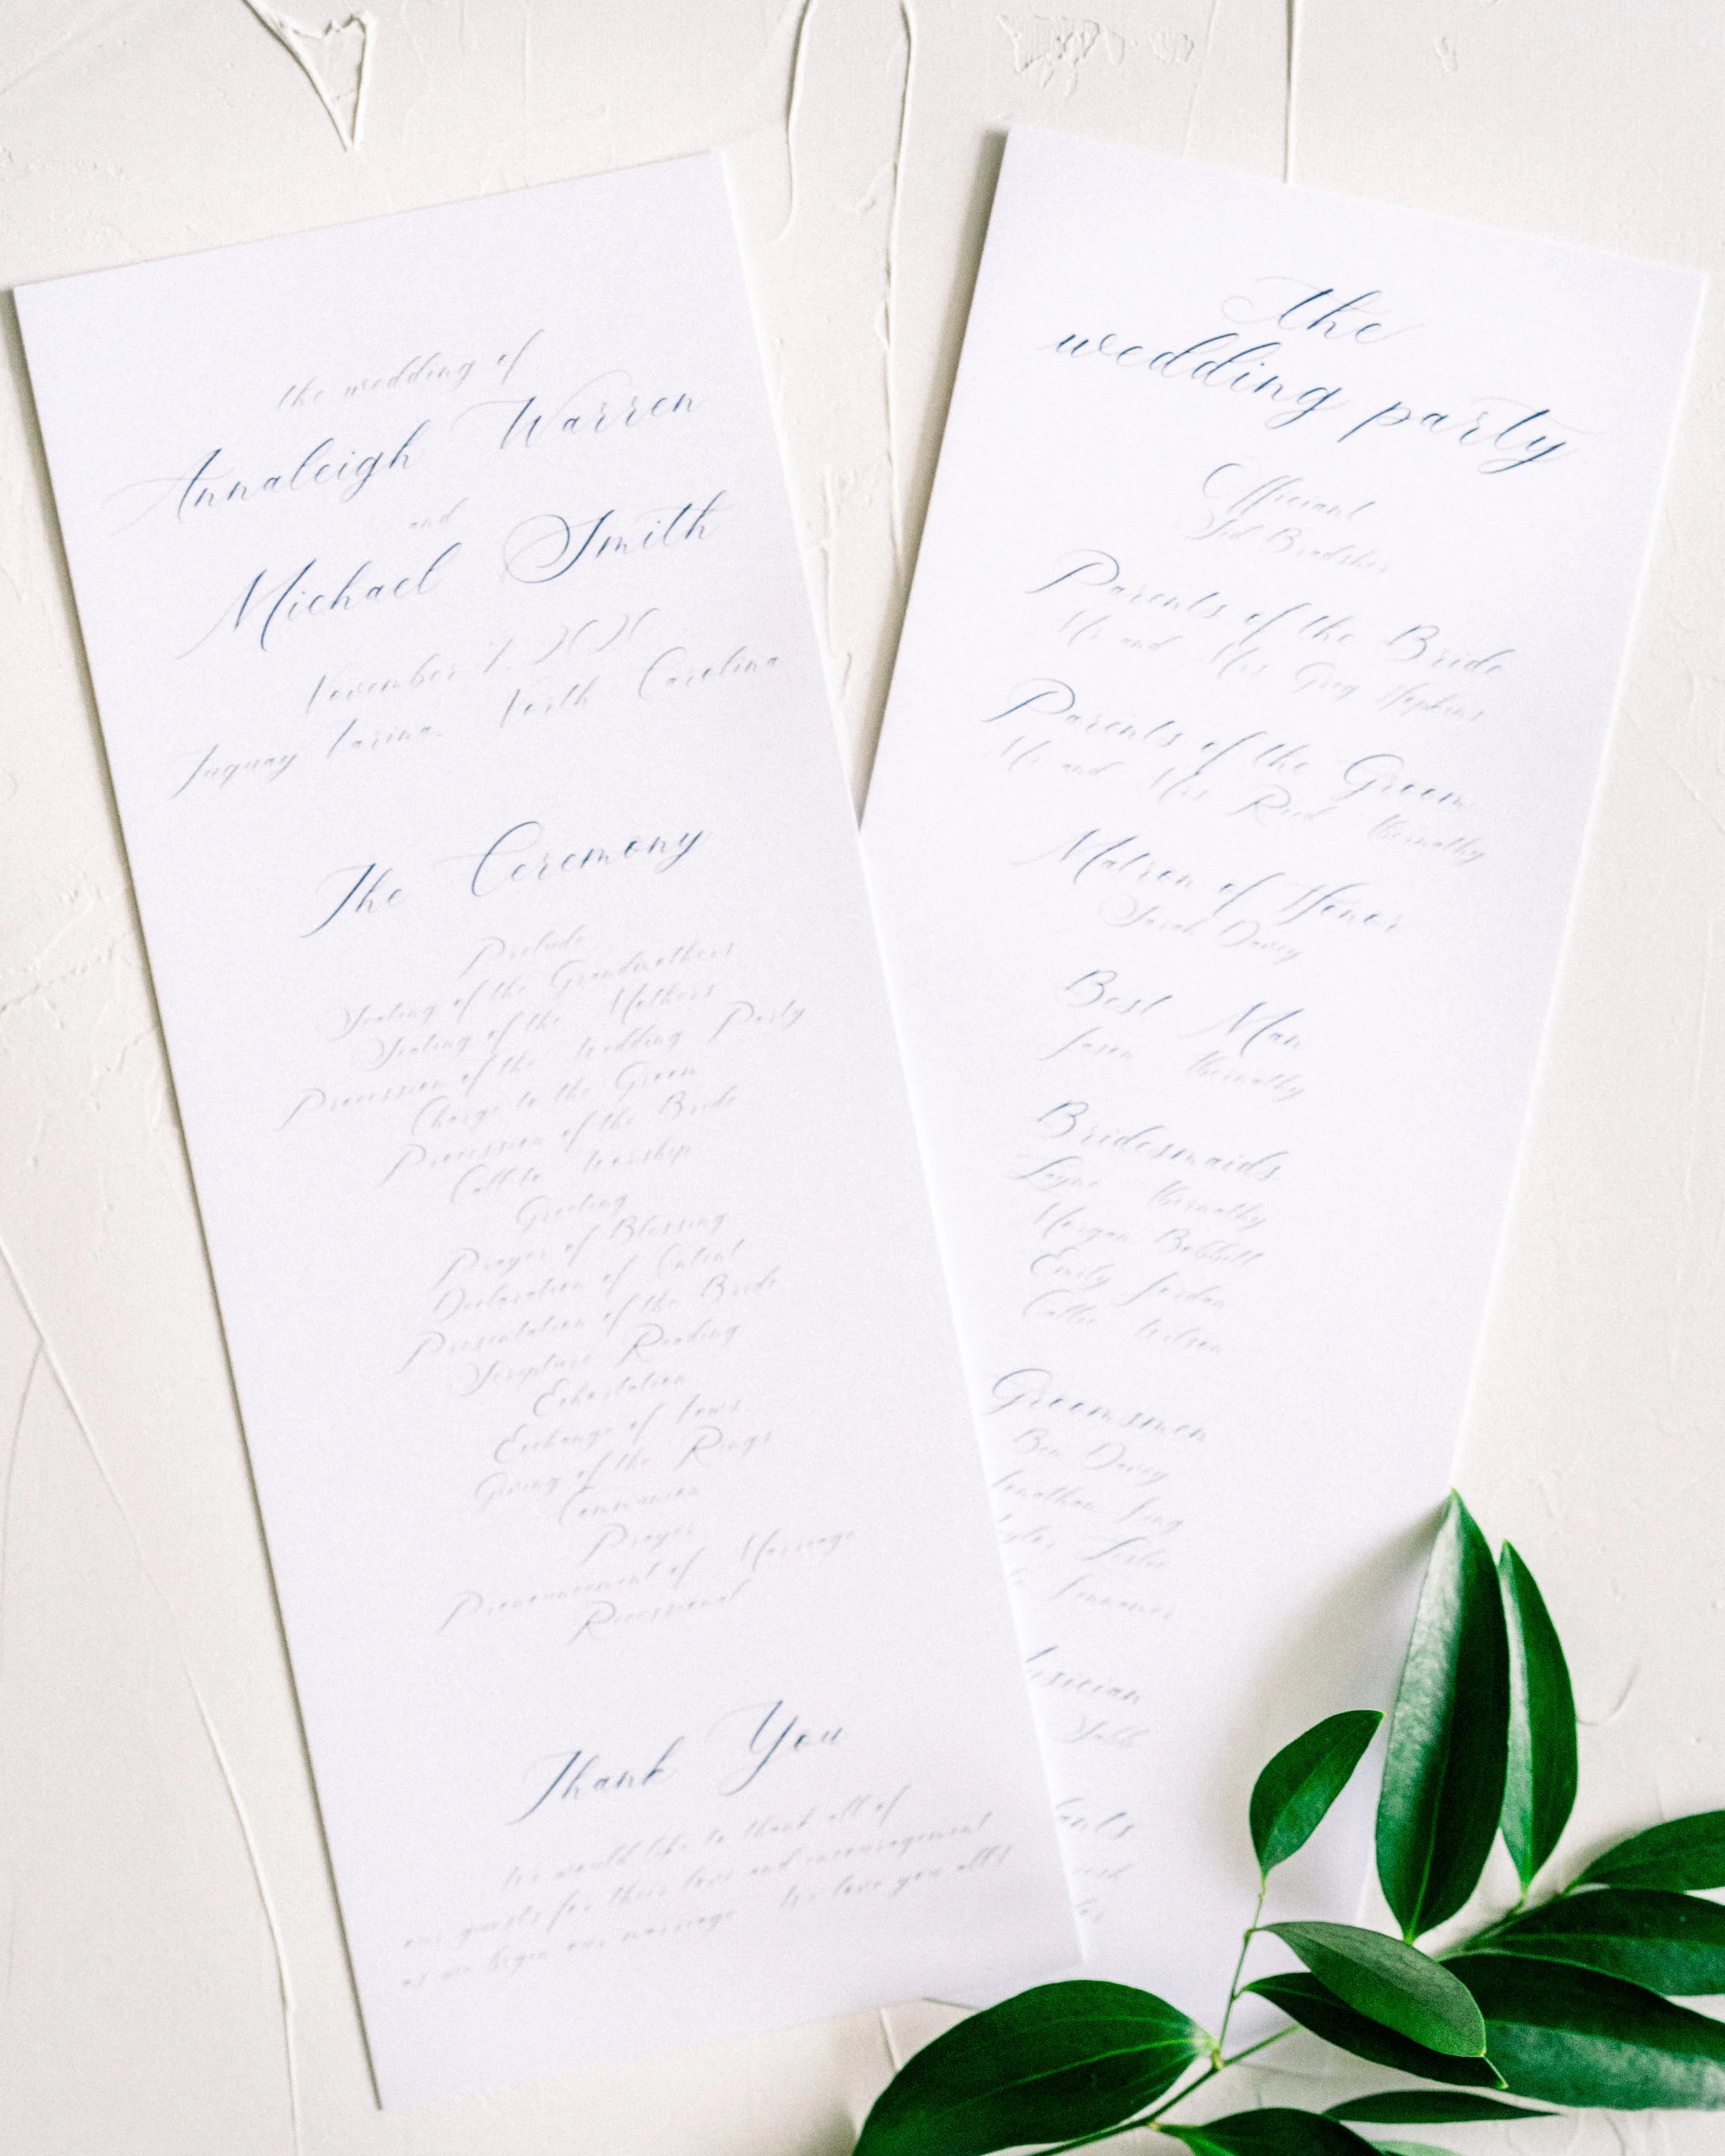 the wedding of
Annaleigh Warren
and
Michael Smith
November 7, 2020
Fuquay Varina, North Carolina
The Ceremony
Prelude
Seating of the Grandmothers
Seating of the Mothers
Procession of the Wedding Party
Charge to the Groom
Procession of the Bride
Call to Worship
Greeting
Prayer of Blessing
Declaration of Intent
Presentation of the Bride
Scripture Reading
Exhortation
Exchange of Vows
Giving of the Rings
Communion
Prayer
Pronouncement of Marriage
Recessional
Thank You
We would like to thank all of
our guests for their love and encouragement
as we begin our marriage. We love you all!
the
wedding party
Officiant
Sid Bradsher
Parents of the Bride
Mr and Mrs Greg Hopkins
Parents of the Groom
Mr and Mrs Reed Abernathy
Matron of Honor
Sarah Davey
Best Man
Jason Abernathy
Bridesmaids
Layne Abernathy
Morgan Bobbitt
Emily Jordan
Callie Wilson
Groomsmen
Ben Davey
Jonathan
Leslie